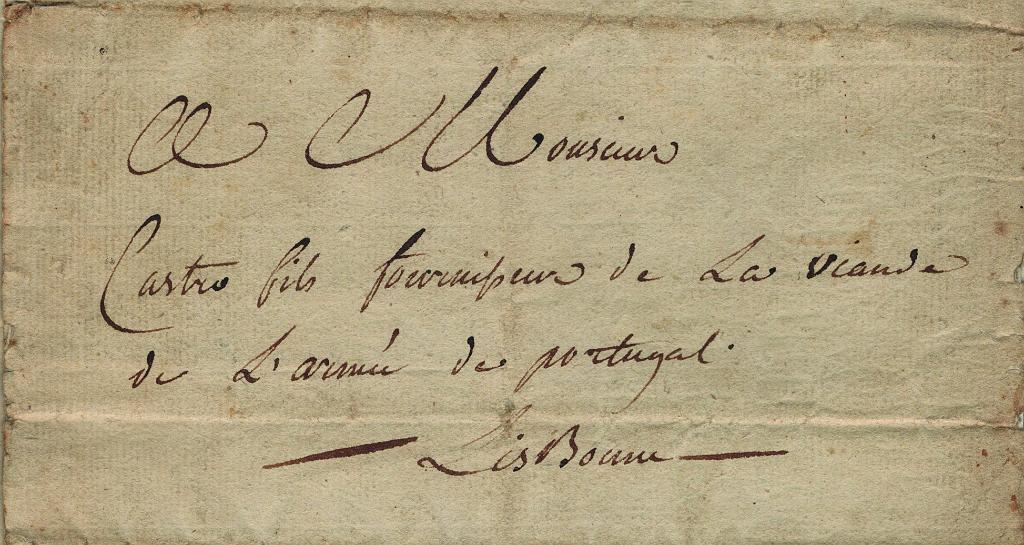 A Monsieur
Castro fils fournisseur de La viande
de L'armée de portugal.
LisBonne